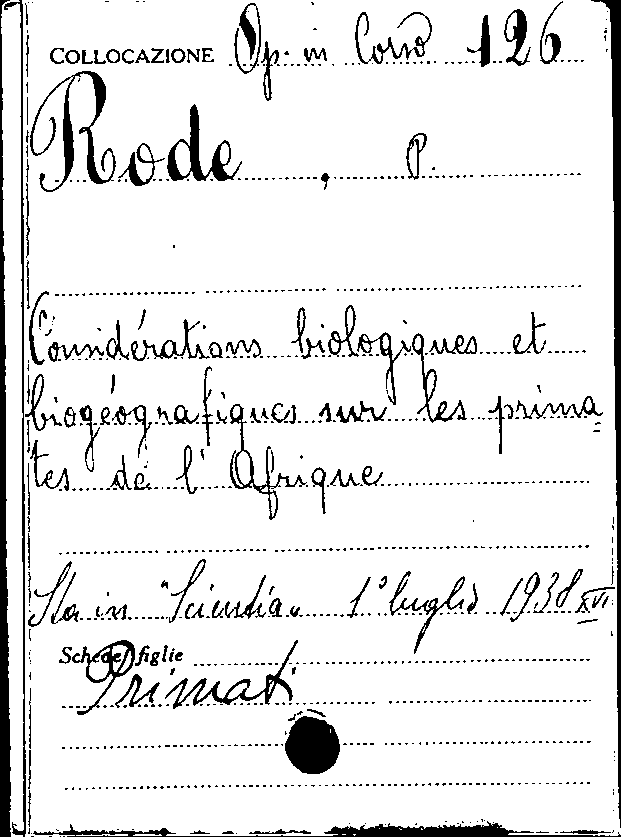 COLLOCAZIONE Op. in Corso 126
Rode, P.
Considérations biologiques et
biogéografiques sur les prima=
tes de l'Afrique
Sta in "Scientia" 1° luglio 1938 XVI
Schede figlie
Primati